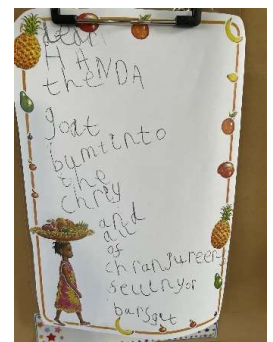 dear
HANDA
the
goat
bumt into
the
chriy
and
all
of
chranjureen
fell in yor
barsget